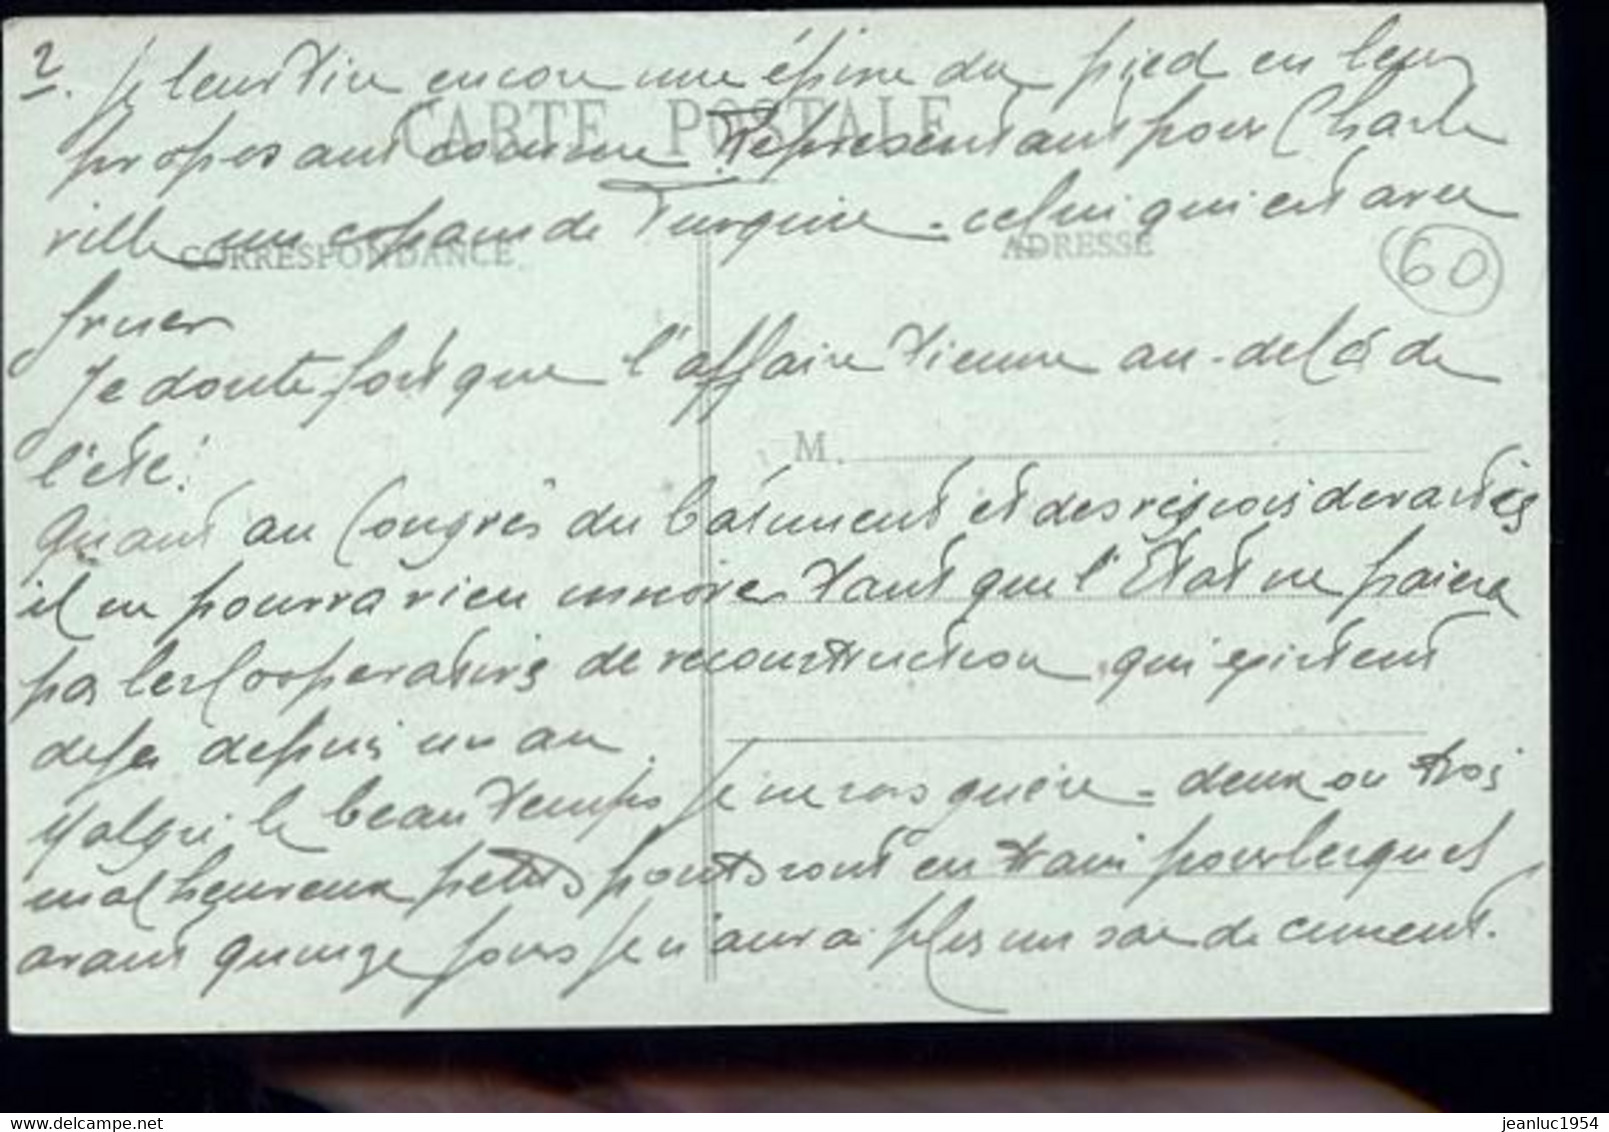 2. Je leur tire encore une épine du pied en leur
CARTE POSTALE
proposant comme Représentant pour Charle
ville un copain de Turquie - celui qui est avec
CORRESPONDANCE
ADRESSE
60
Je doute fort que l'affaire tienne au-delà de
M.
l'été!
Quant au Congrès du bâtiment et des régions dévastées
il ne pourra rien tant que l'Etat ne paiera
pas les Cooperatives de reconstruction qui existent
deja depuis un an
Malgré le beau temps je ne vois guère - deux ou trois
malheureux petits ponts sont en train pour lesquels
avant quinze jours je n'aurai plus un sac de ciment.
jeanluc1954